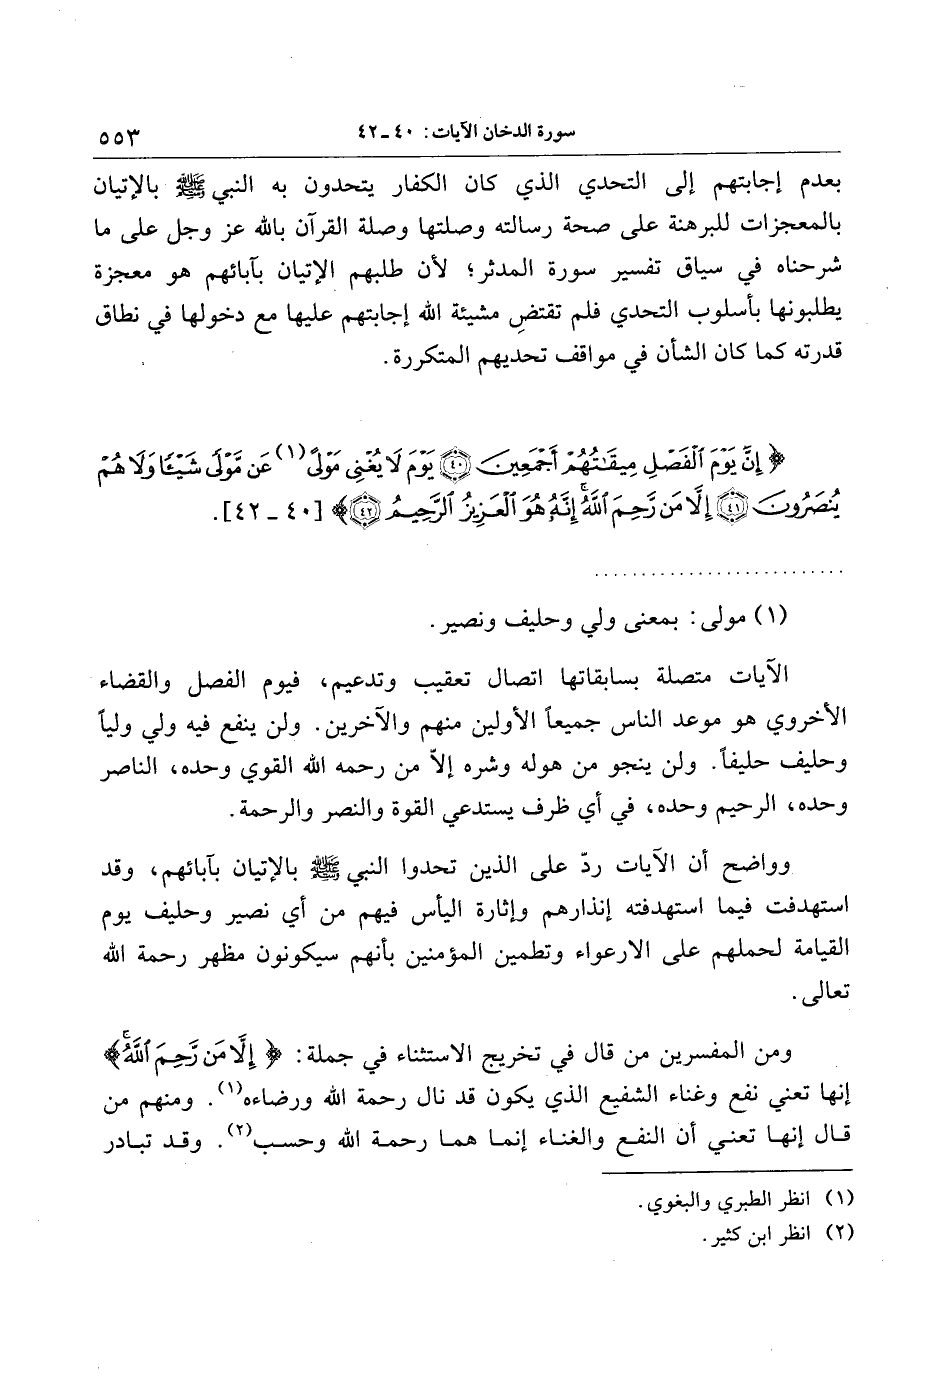 سورة الدخان الآيات: ٤٠ ـ ٤٢ ٥٥٣
بعدم إجابتهم إلى التحدي الذي كان الكفار يتحدون به النبي ﷺ بالإتيان
بالمعجزات للبرهنة على صحة رسالته وصلتها وصلة القرآن بالله عز وجل على ما
شرحناه في سياق تفسير سورة المدثر؛ لأن طلبهم الإتيان بآبائهم هو معجزة
يطلبونها بأسلوب التحدي فلم تقتضِ مشيئة الله إجابتهم عليها مع دخولها في نطاق
قدرته كما كان الشأن في مواقف تحديهم المتكررة.
﴿إِنَّ يَوْمَ ٱلْفَصْلِ مِيقَٰتُهُمْ أَجْمَعِينَ ﴿٤٠﴾ يَوْمَ لَا يُغْنِى مَوْلًى(١) عَن مَّوْلًى شَيْـًٔا وَلَا هُمْ
يُنصَرُونَ ﴿٤١﴾ إِلَّا مَن رَّحِمَ ٱللَّهُ ۚ إِنَّهُۥ هُوَ ٱلْعَزِيزُ ٱلرَّحِيمُ ﴿٤٢﴾﴾ [٤٠ ـ ٤٢].
..........................
(١) مولى: بمعنى ولي وحليف ونصير.
الآيات متصلة بسابقاتها اتصال تعقيب وتدعيم، فيوم الفصل والقضاء
الأخروي هو موعد الناس جميعاً الأولين منهم والآخرين. ولن ينفع فيه ولي ولياً
وحليف حليفاً. ولن ينجو من هوله وشره إلاّ من رحمه الله القوي وحده، الناصر
وحده، الرحيم وحده، في أي ظرف يستدعي القوة والنصر والرحمة.
وواضح أن الآيات ردّ على الذين تحدوا النبي ﷺ بالإتيان بآبائهم، وقد
استهدفت فيما استهدفته إنذارهم وإثارة اليأس فيهم من أي نصير وحليف يوم
القيامة لحملهم على الارعواء وتطمين المؤمنين بأنهم سيكونون مظهر رحمة الله
تعالى.
ومن المفسرين من قال في تخريج الاستثناء في جملة: ﴿إِلَّا مَن رَّحِمَ ٱللَّهُ ۚ﴾
إنها تعني نفع وغناء الشفيع الذي يكون قد نال رحمة الله ورضاءه(١). ومنهم من
قال إنها تعني أن النفع والغناء إنما هما رحمة الله وحسب(٢). وقد تبادر
(١) انظر الطبري والبغوي.
(٢) انظر ابن كثير.